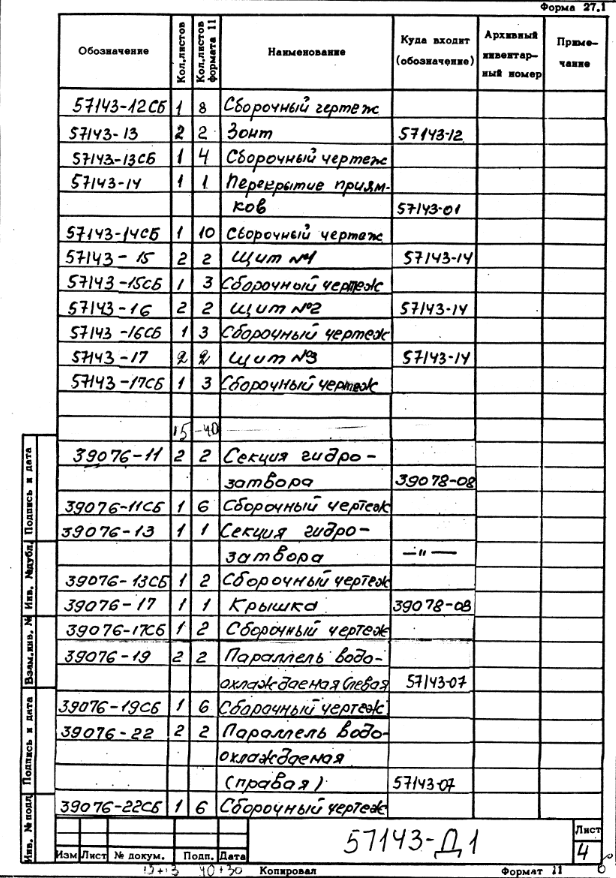 Форма 27.1
Обозначение Кол.листов Кол.листов формата 11 Наименование Куда входит (обозначение) Архивный инвентар-ный номер Приме-чание
57143-12СБ 1 8 Сборочный чертеж
57143-13 2 2 Зонт 57143-12
57143-13СБ 1 4 Сборочный чертеж
57143-14 1 1 Перекрытие приям-
ков 57143-01
57143-14СБ 1 10 Сборочный чертеж
57143-15 2 2 Щит №1 57143-14
57143-15СБ 1 3 Сборочный чертеж
57143-16 2 2 Щит №2 57143-14
57143-16СБ 1 3 Сборочный чертеж
57143-17 2 2 Щит №3 57143-14
57143-17СБ 1 3 Сборочный чертеж
15 -40
39076-11 2 2 Секция гидро-
затвора 39078-08
39076-11СБ 1 6 Сборочный чертеж
39076-13 1 1 Секция гидро-
затвора —"—
39076-13СБ 1 2 Сборочный чертеж
39076-17 1 1 Крышка 39078-08
39076-17СБ 1 2 Сборочный чертеж
39076-19 2 2 Параллель водо-
охлаждаемая (левая) 57143-07
39076-19СБ 1 6 Сборочный чертеж
39076-22 2 2 Параллель водо-
охлаждаемая
(правая) 57143-07
39076-22СБ 1 6 Сборочный чертеж
Подпись и дата
Инв. №дубл.
Взам.инв. №
Подпись и дата
Инв. №подл
57143-Д1
Лист
4
Изм Лист № докум. Подп. Дата
15+13 40+30 Копировал Формат 11